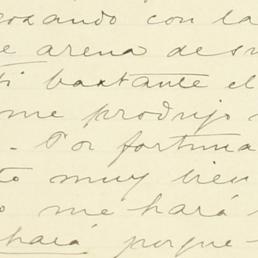 gozando con la
e arena des
ti bastante el
me produjo
. Por fortuna
to muy bien
o me hará
hará porque